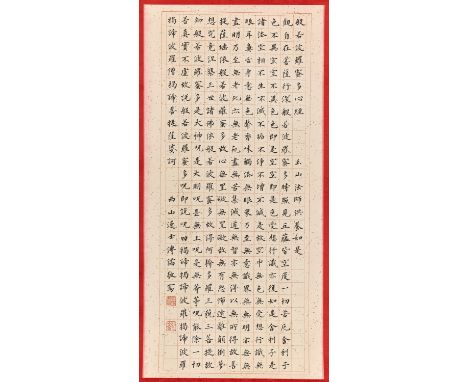 般若波羅蜜多心經 玉山法師洪養如是
觀自在菩薩行深般若波羅蜜多時照見五蘊皆空度一切苦厄舍利子
色不異空空不異色色即是空空即是色受想行識亦復如是舍利子是
諸法空相不生不滅不垢不淨不增不減是故空中無色無受想行識無
眼耳鼻舌身意無色聲香味觸法無眼界乃至無意識界無無明亦無無
明盡乃至無老死亦無老死盡無苦集滅道無智亦無得以無所得故菩
提薩埵依般若波羅蜜多故心無罣礙無罣礙故無有恐怖遠離顛倒夢
想究竟涅槃三世諸佛依般若波羅蜜多故得阿耨多羅三藐三菩提故
知般若波羅蜜多是大神咒是大明咒是無上咒是無等等咒能除一切
苦真實不虛故說般若波羅蜜多咒即說咒曰揭諦揭諦波羅揭諦波羅
揭諦波羅僧揭諦菩提薩婆訶 西山逸士溥儒敬寫